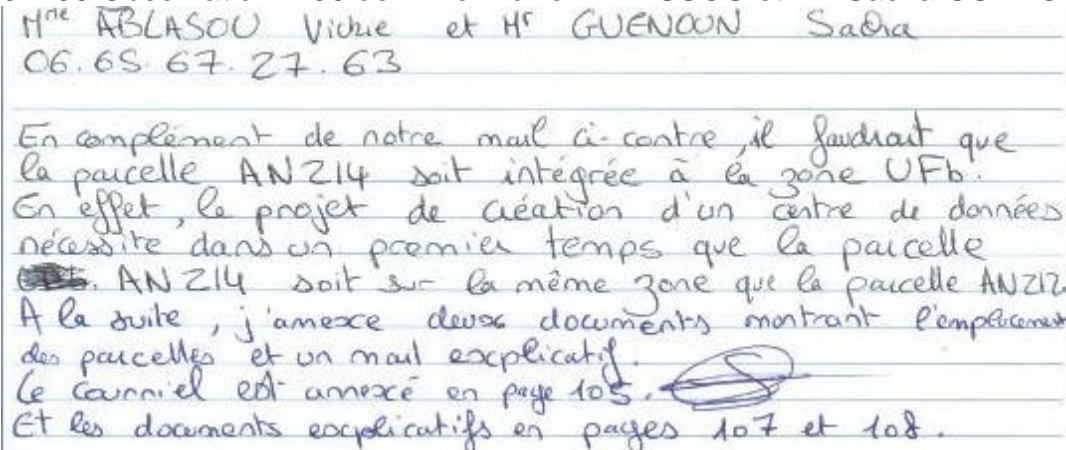 Mme ABLASOU Vickie et Mr GUENOUN Sacha
06.65.67.27.63
En complément de notre mail ci-contre, il faudrait que
la parcelle AN214 soit intégrée à la zone UFb.
En effet, le projet de création d'un centre de données
nécessite dans un premier temps que la parcelle
AN214 soit sur la même zone que la parcelle AN212
A la suite, j'annexe deux documents montrant l'emplacement
des parcelles et un mail explicatif.
Le courriel est annexé en page 105.
Et les documents explicatifs en pages 107 et 108.